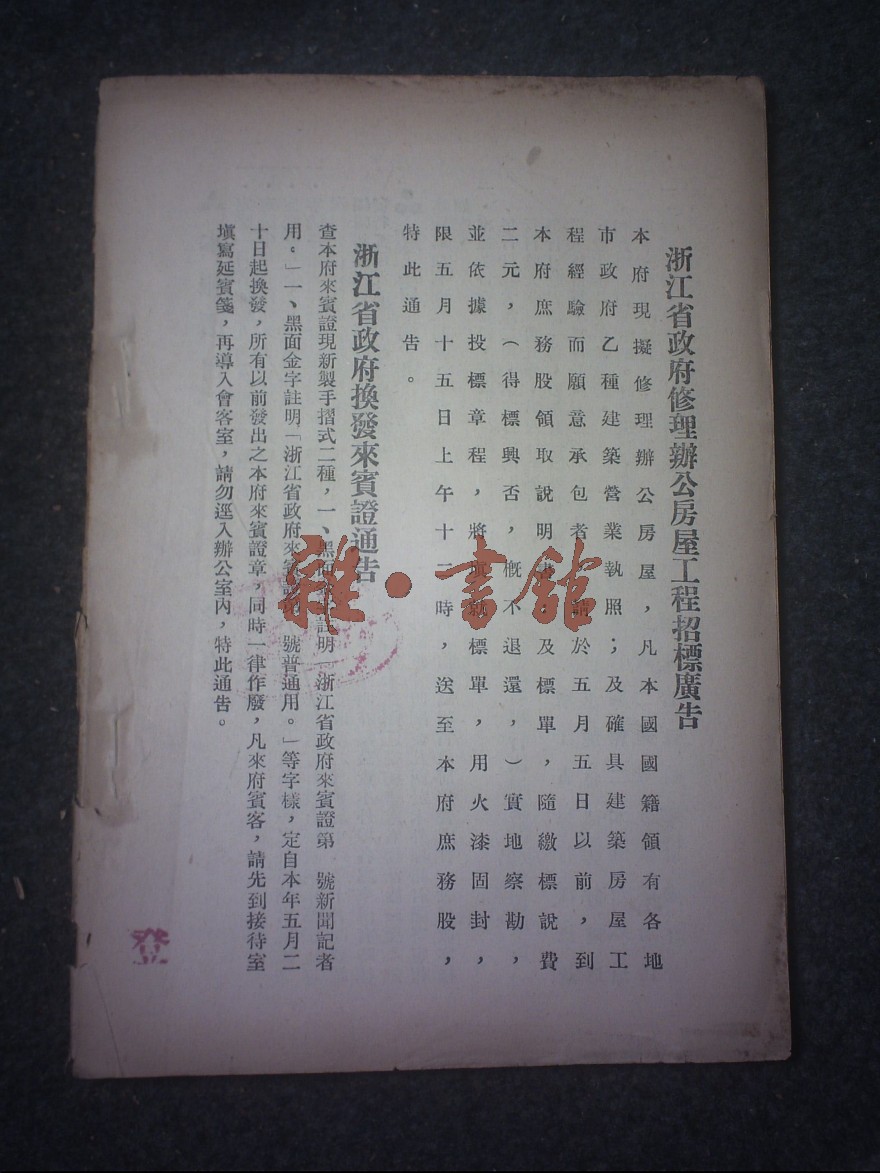 浙江省政府修理辦公房屋工程招標廣告
本府現擬修理辦公房屋，凡本國國籍領有各地
市政府乙種建築營業執照；及確具建築房屋工
程經驗而願意承包者，請於五月五日以前，到
本府庶務股領取說明書及標單，隨繳標說費
二元，（得標與否，概不退還，）實地察勘，
並依據投標章程，將標單，用火漆固封，
限五月十五日上午十二時，送至本府庶務股，
特此通告。
浙江省政府換發來賓證通告
查本府來賓證現新製手摺式二種，一、黑面註明「浙江省政府來賓證第　號新聞記者
用。」一、黑面金字註明「浙江省政府來賓證第　號普通用。」等字樣，定自本年五月二
十日起換發，所有以前發出之本府來賓證章，同時一律作廢，凡來府賓客，請先到接待室
塡寫延賓箋，再導入會客室，請勿逕入辦公室內，特此通告。
雜·書館
登